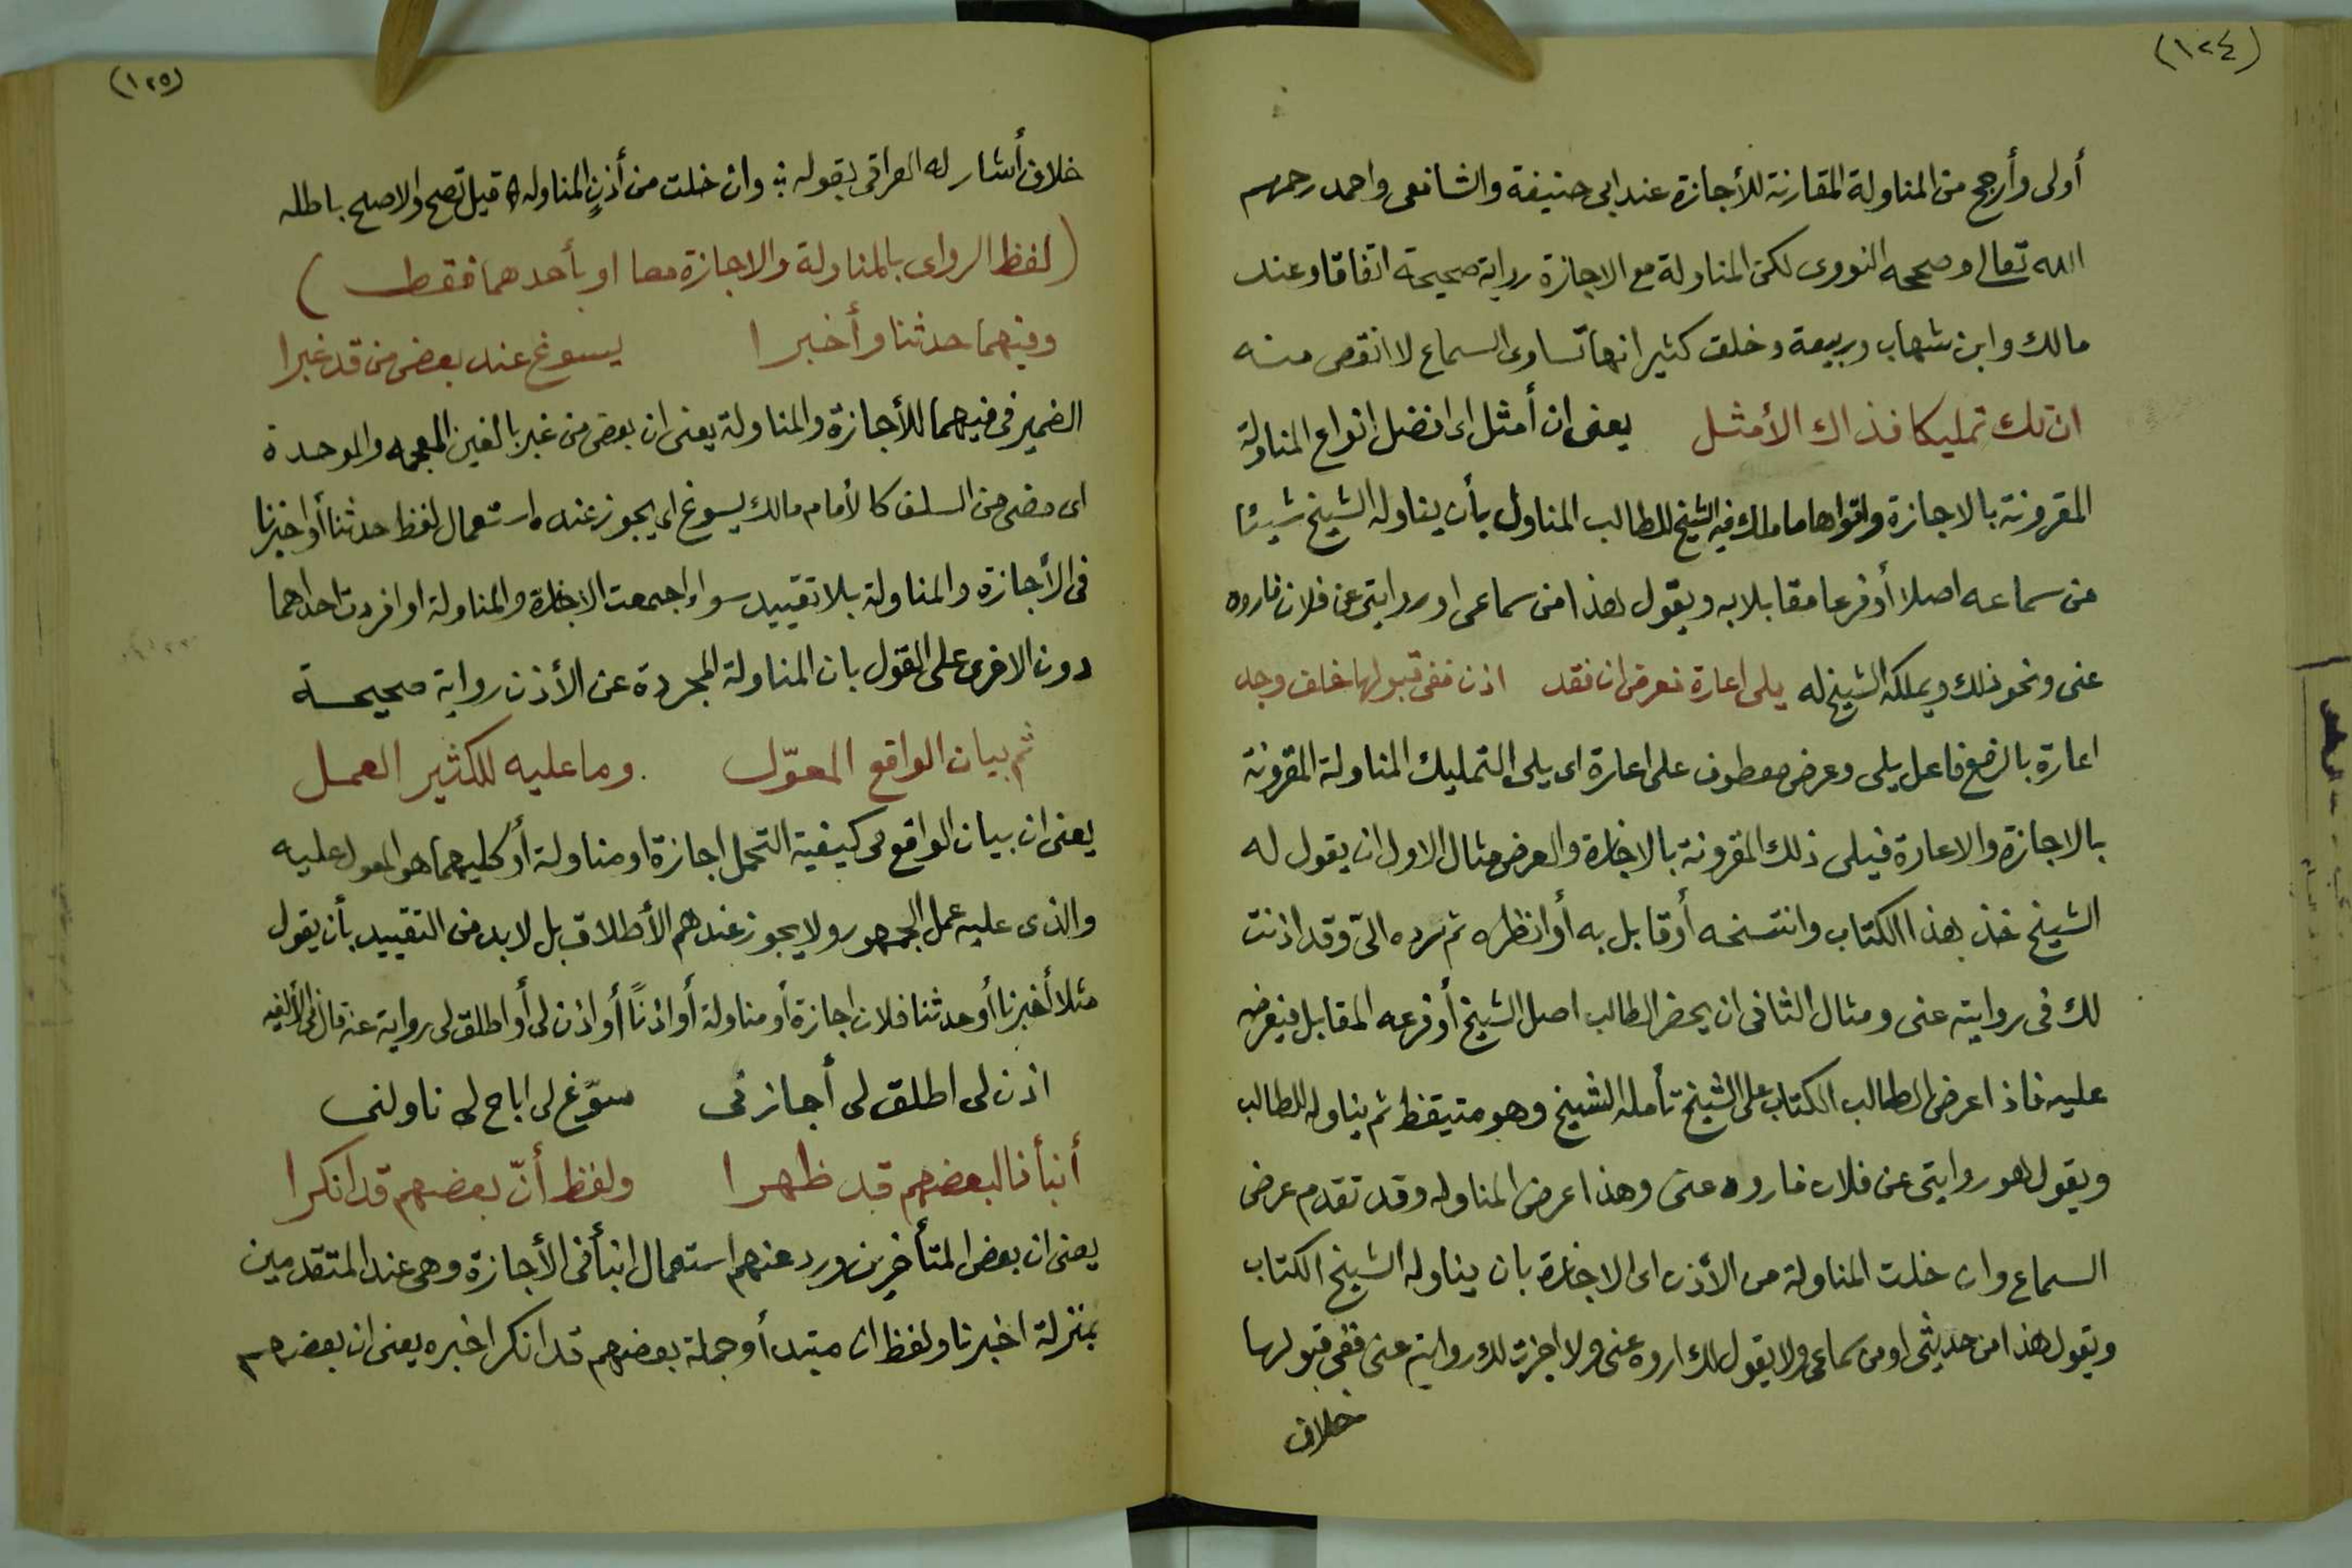 (١٢٤)
أولى وأرجح من المناولة المقارنة للأجازة عند ابى حنيفة والشافعى واحمد رحمهم
الله تعالى وصححه النووى لكن المناولة مع الاجازة رواية صحيحة اتفاقا وعند
مالك وابن شهاب وربيعة وخلق كثير انها تساوى السماع لا انقص منه
ان تك تمليكا فذاك الأمثل يعنى ان أمثل اى افضل انواع المناولة
المقرونة بالاجازة واقواها ما ملك فيه الشيخ للطالب المناول بأن يناوله الشيخ شيئا
من سماعه اصلا أو فرعا مقابلا به ويقول هذا من سماعى او روايتى عن فلان فاروه
عنى ونحو ذلك ويملكه الشيخ له يلى اعارة فعرض ان فقد اذن ففى قبولها خلف وجد
اعارة بالرفع فاعل يلى وعرض معطوف على اعارة اى يلى التمليك المناولة المقرونة
بالاجازة والاعارة فيلى ذلك المقرونة بالاجازة والعرض مثال الاول ان يقول له
الشيخ خذ هذا الكتاب وانتسخه أو قابل به أو انظره ثم ترده الىّ وقد اذنت
لك فى روايته عنى ومثال الثانى ان يحضر الطالب اصل الشيخ أو فرعه المقابل فيعرضه
عليه فاذا عرض الطالب الكتاب على الشيخ تأمله الشيخ وهو متيقظ ثم يناوله للطالب
ويقول هو روايتى عن فلان فاروه عنى وهذا عرض المناوله وقد تقدم عرض
السماع وان خلت المناولة من الأذن اى الاجازة بان يناوله الشيخ الكتاب
ويقول هذا من حديثى او من سماعى ولا يقول لك اروه عنى ولا اجزت لك روايته عنى ففى قبولها
خلاف
(١٢٥)
خلاف أشار له العراقى بقوله وان خلت من أذن المناوله قيل تصح والاصح باطله
(لفظ الراوى بالمناولة والاجازة معا او بأحدهما فقط)
وفيهما حدثنا وأخبرا يسوغ عند بعض من قد غبرا
الضمير فى فيهما للأجازة والمناولة يعنى ان بعض من غبر بالغين المعجمه والموحدة
اى مضى من السلف كالأمام مالك يسوغ اى يجوز عنده استعمال لفظ حدثنا أو اخبرنا
فى الأجازة والمناولة بلا تقييد سواء اجتمعت الاجازة والمناولة او افردت احداهما
دون الاخرى على القول بان المناولة المجردة عن الأذن رواية صحيحة
ثم بيان الواقع المعوّل وما عليه للكثير العمل
يعنى ان بيان الواقع فى كيفية التحمل اجازة او مناولة أو كليهما هو المعول عليه
والذى عليه عمل الجمهور ولا يجوز عندهم الأطلاق بل لا بد من التقييد بأن يقول
مثلا أخبرنا أو حدثنا فلان اجازة أو مناولة أو اذنًا أو اذن لى أو اطلق لى رواية عنه قال فى الألفيه
اذن لى اطلق لى أجازنى سوّغ لى اباح لى ناولنى
أنبأنا لبعضهم قد ظهرا ولفظ أنّ بعضهم قد انكرا
يعنى ان بعض المتأخرين ورد عنهم استعمال انبأ فى الأجازة وهى عند المتقدمين
بمنزلة اخبرنا ولفظ ان مبتدأ وجملة بعضهم قد انكرا خبره يعنى ان بعضهم